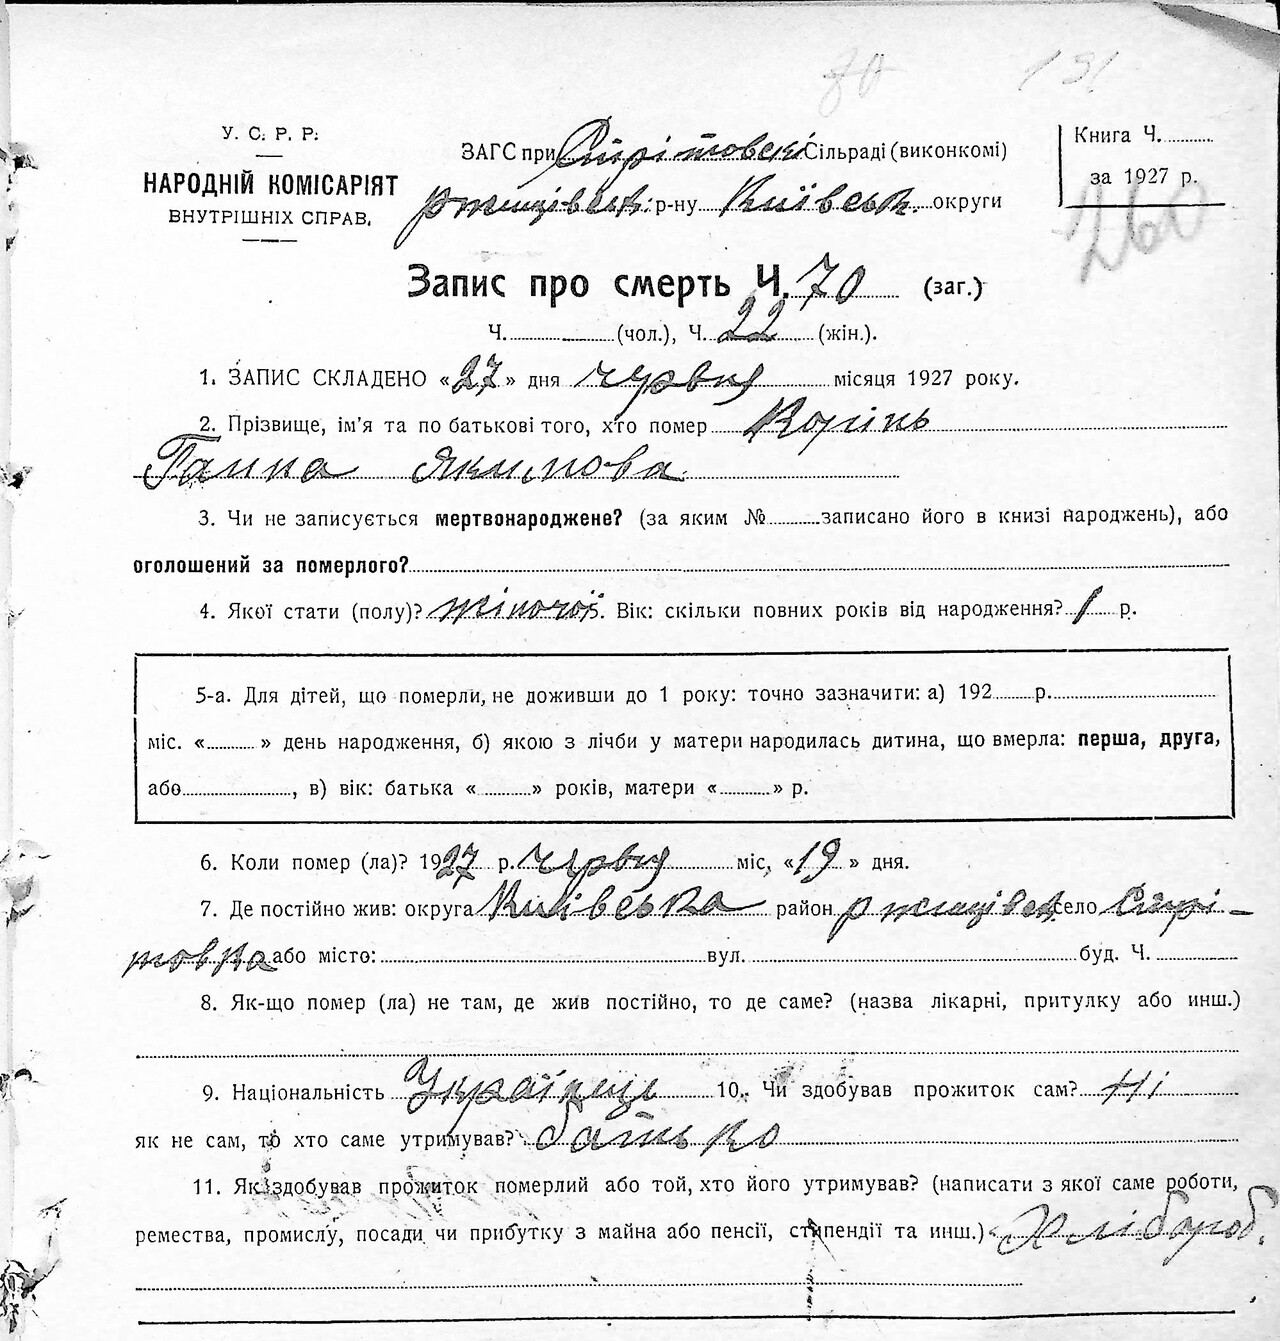 70 131
У. С. Р. Р.
НАРОДНІЙ КОМІСАРІЯТ
ВНУТРІШНІХ СПРАВ.
ЗАГС при Стрітовскі Сільраді (виконкомі)
ржищівськ. р-ну Київськ. округи
Книга Ч.
за 1927 р.
260
Запис про смерть Ч. 70 (заг.)
Ч. (чол.), Ч. 22 (жін.).
1. ЗАПИС СКЛАДЕНО «27» дня червня місяця 1927 року.
2. Прізвище, ім'я та по батькові того, хто помер Корінь
Ганна Якимова
3. Чи не записується мертвонароджене? (за яким № записано його в книзі народжень), або
оголошений за померлого?
4. Якої стати (полу)? жіночої. Вік: скільки повних років від народження? 1 р.
5-а. Для дітей, що померли, не доживши до 1 року: точно зазначити: а) 192 р.
міс. « » день народження, б) якою з лічби у матери народилась дитина, що вмерла: перша, друга,
або , в) вік: батька « » років, матери « » р.
6. Коли помер (ла)? 1927 р. червня міс, «19» дня.
7. Де постійно жив: округа Київська район ржищівськ село Стрі-
товка або місто: вул. буд. Ч.
8. Як-що помер (ла) не там, де жив постійно, то де саме? (назва лікарні, притулку або инш.)
9. Національність Українець 10. Чи здобував прожиток сам? Ні
як не сам, то хто саме утримував? батько
11. Як здобував прожиток померлий або той, хто його утримував? (написати з якої саме роботи,
ремества, промислу, посади чи прибутку з майна або пенсії, стипендії та инш.) Хлібороб.